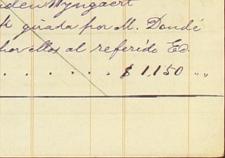 Wyngaert
guada por M. Dondé
ellos al referido Ed
. . . . . . $ 1,150 „